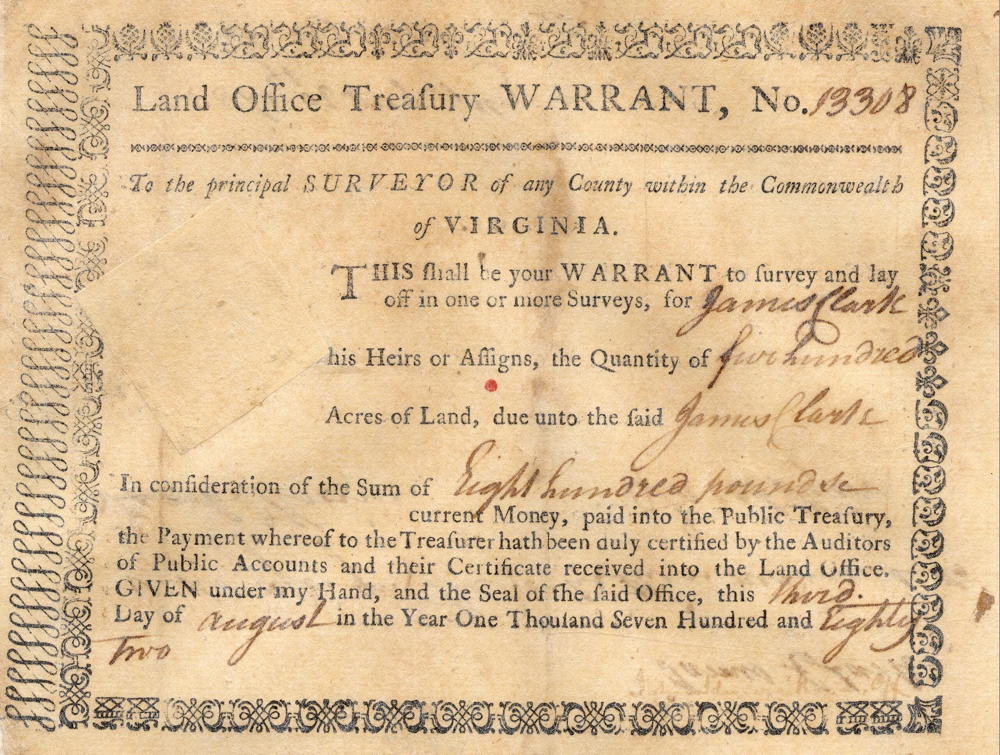 Land Office Treaſury WARRANT, No. 13308
To the principal SURVEYOR of any County within the Commonwealth
of VIRGINIA.
THIS ſhall be your WARRANT to ſurvey and lay
off in one or more Surveys, for James Clark
his Heirs or Aſſigns, the Quantity of five hundred
Acres of Land, due unto the ſaid James Clark
In conſideration of the Sum of Eight hundred pounds
current Money, paid into the Public Treaſury,
the Payment whereof to the Treaſurer hath been duly certified by the Auditors
of Public Accounts and their Certificate received into the Land Office.
GIVEN under my Hand, and the Seal of the ſaid Office, this third
Day of august in the Year One Thouſand Seven Hundred and Eighty
Two